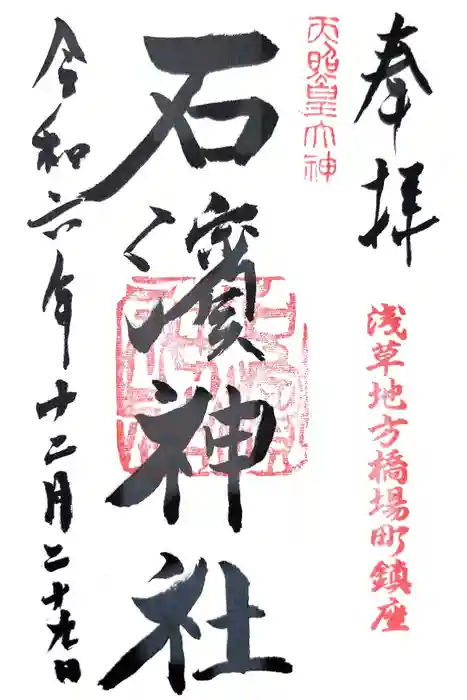 奉拝
浅草地方橋場町鎮座
天照皇大神
石濱神社
令和六年十二月二十九日